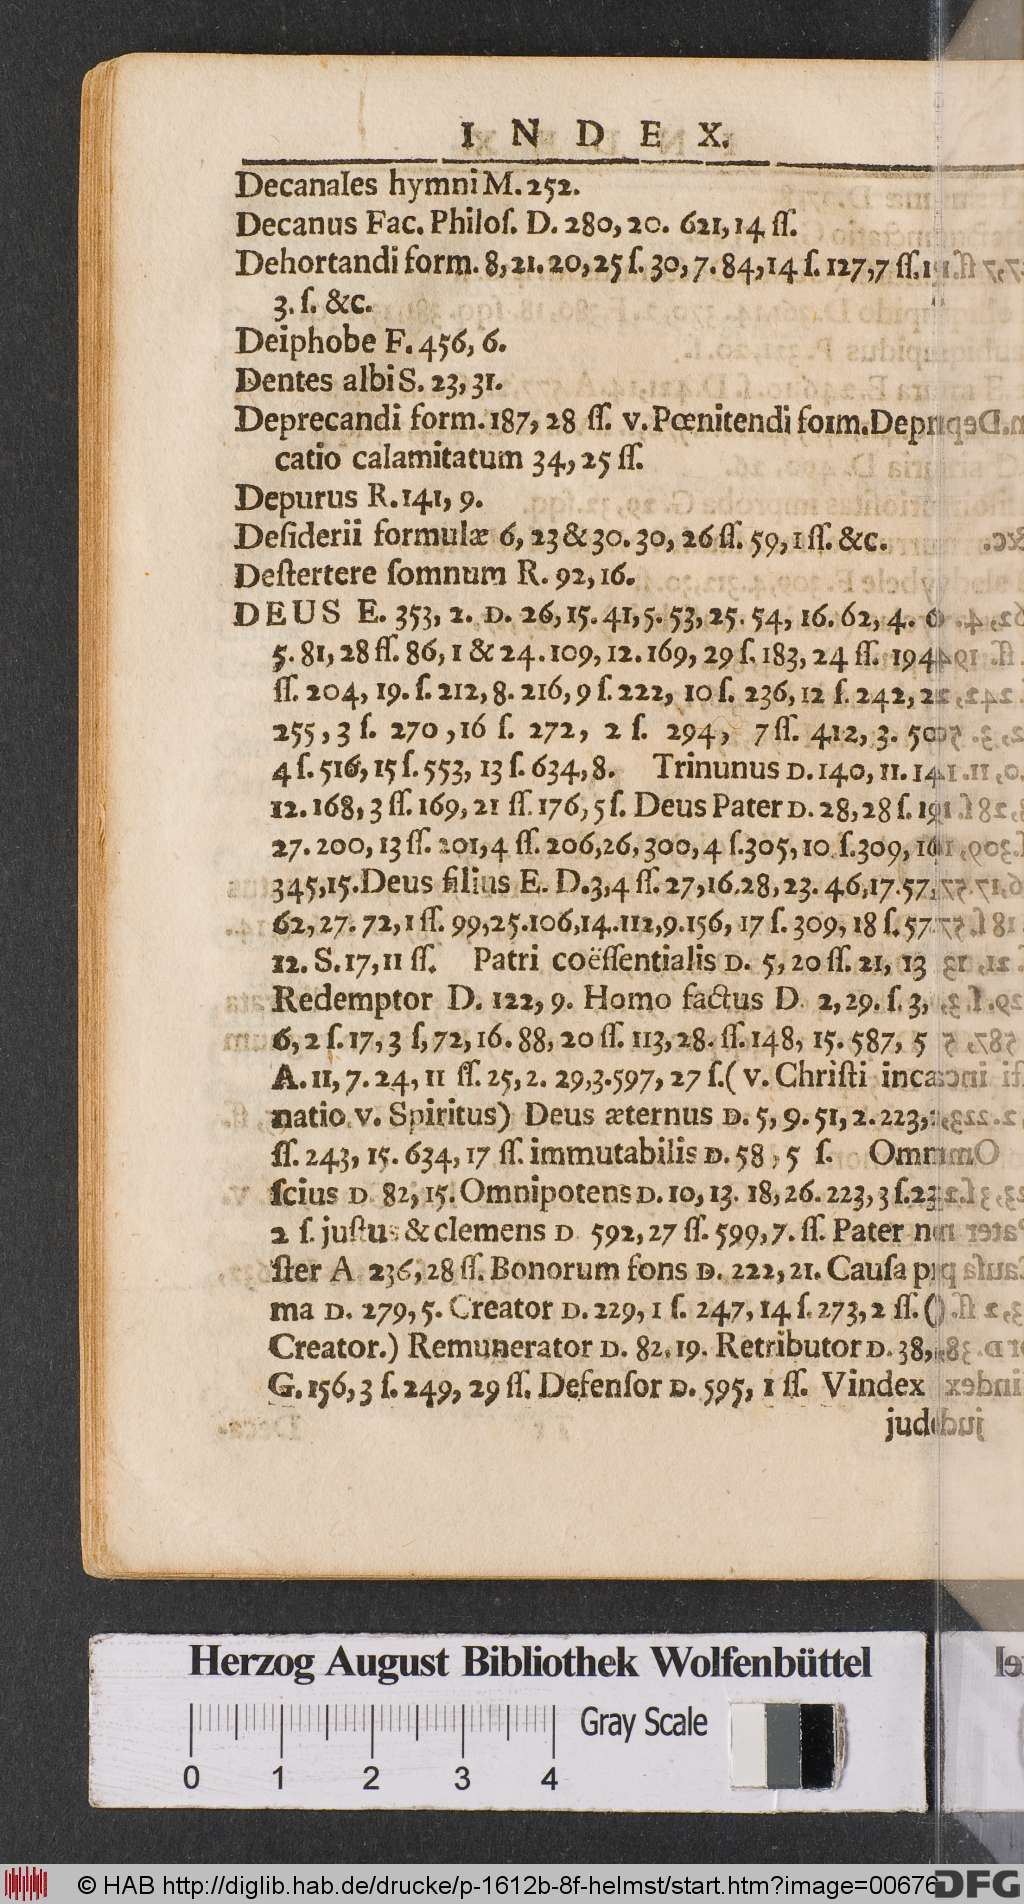 INDEX.
Decanales hymni M. 252.
Decanus Fac. Philoſ. D. 280, 20. 621, 14 ſſ.
Dehortandi form. 8, 21. 20, 25 ſ. 30, 7. 84, 14 ſ. 127, 7 ſſ.
3. ſ. &c.
Deiphobe F. 456, 6.
Dentes albi S. 23, 31.
Deprecandi form. 187, 28 ſſ. v. Pœnitendi foım. Depri
catio calamitatum 34, 25 ſſ.
Depurus R. 141, 9.
Deſiderii formulæ 6, 23 & 30. 30, 26 ſſ. 59, 1 ſſ. &c.
Deſtertere ſomnum R. 92, 16.
DEUS E. 353, 2. D. 26, 15. 41, 5. 53, 25. 54, 16. 62, 4.
5. 81, 28 ſſ. 86, 1 & 24. 109, 12. 169, 29 ſ. 183, 24 ſſ. 194
ſſ. 204, 19. ſ. 212, 8. 216, 9 ſ. 222, 10 ſ. 236, 12 ſ. 242, 2
255, 3 ſ. 270, 16 ſ. 272, 2 ſ. 294, 7 ſſ. 412, 3. 50
4 ſ. 516, 15 ſ. 553, 13 ſ. 634, 8. Trinunus D. 140, 11. 14
12. 168, 3 ſſ. 169, 21 ſſ. 176, 5 ſ. Deus Pater D. 28, 28 ſ. 19
27. 200, 13 ſſ. 201, 4 ſſ. 206, 26, 300, 4 ſ. 305, 10 ſ. 309,
345, 15. Deus filius E. D. 3, 4 ſſ. 27, 16. 28, 23. 46, 17. 57,
62, 27. 72, 1 ſſ. 99, 25. 106, 14. 112, 9. 156, 17 ſ. 309, 18 ſ. 57
12. S. 17, 11 ſſ. Patri coëſſentialis D. 5, 20 ſſ. 21, 13
Redemptor D. 122, 9. Homo factus D. 2, 29. ſ. 3,
6, 2 ſ. 17, 3 ſ, 72, 16. 88, 20 ſſ. 113, 28. ſſ. 148, 15. 587, 5
A. 11, 7. 24, 11 ſſ. 25, 2. 29, 3. 597, 27 ſ. ( v. Chriſti inca
natio v. Spiritus) Deus æternus D. 5, 9. 51, 2. 223,
ſſ. 243, 15. 634, 17 ſſ. immutabilis D. 58, 5 ſ. Omni
ſcius D 82, 15. Omnipotens D. 10, 13. 18, 26. 223, 3 ſ. 23
2 ſ. juſtus & clemens D 592, 27 ſſ. 599, 7. ſſ. Pater no
ſter A 236, 28 ſſ. Bonorum fons D. 222, 21. Cauſa pri
ma D. 279, 5. Creator D. 229, 1 ſ. 247, 14 ſ. 273, 2 ſſ. (
Creator.) Remunerator D. 82. 19. Retributor D. 38,
G. 156, 3 ſ. 249, 29 ſſ. Defenſor D. 595, 1 ſſ. Vindex
jud
Herzog August Bibliothek Wolfenbüttel
Gray Scale
0 1 2 3 4
© HAB http://diglib.hab.de/drucke/p-1612b-8f-helmst/start.htm?image=00676
DFG